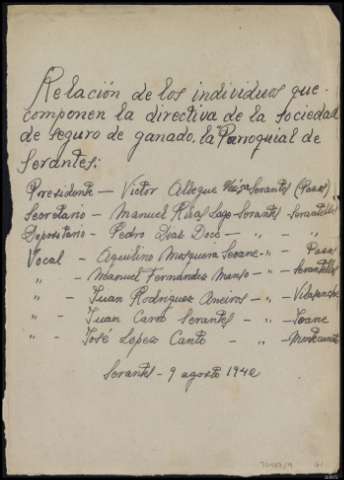 Relación de los individuos que
componen la directiva de la Sociedad
de seguro de ganado, la Parroquial de
Serantes:
Presidente — Victor Allegue Serantes (Pazos)
Secretario — Manuel Rivas Lago - Serantes - Serantellos
Depositario — Pedro Diaz Doce — " — " — "
Vocal — Aquilino Mosquera Seoane — " Pazos
" — Manuel Fernández Manso — " — Serantellos
" — Juan Rodriguez Aneiros — " — Vilasanche
" — Juan Caro Serantes — " — Joane
" — José López Canto — " —
Serantes - 9 agosto 1942